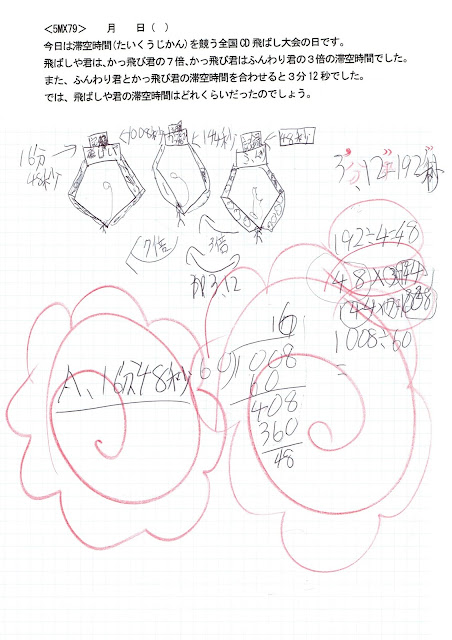 <5MX79>　　月　　日（　）
今日は滞空時間(たいくうじかん)を競う全国CD飛ばし大会の日です。
飛ばしや君は、かっ飛び君の7倍、かっ飛び君はふんわり君の3倍の滞空時間でした。
また、ふんわり君とかっ飛び君の滞空時間を合わせると3分12秒でした。
では、飛ばしや君の滞空時間はどれくらいだったのでしょう。
16分
48秒
1008秒
144秒
48秒
7倍
3倍
3、12=192秒
192÷4=48
1008÷60
=
A、16分48秒
16
60)1008
60
408
360
48